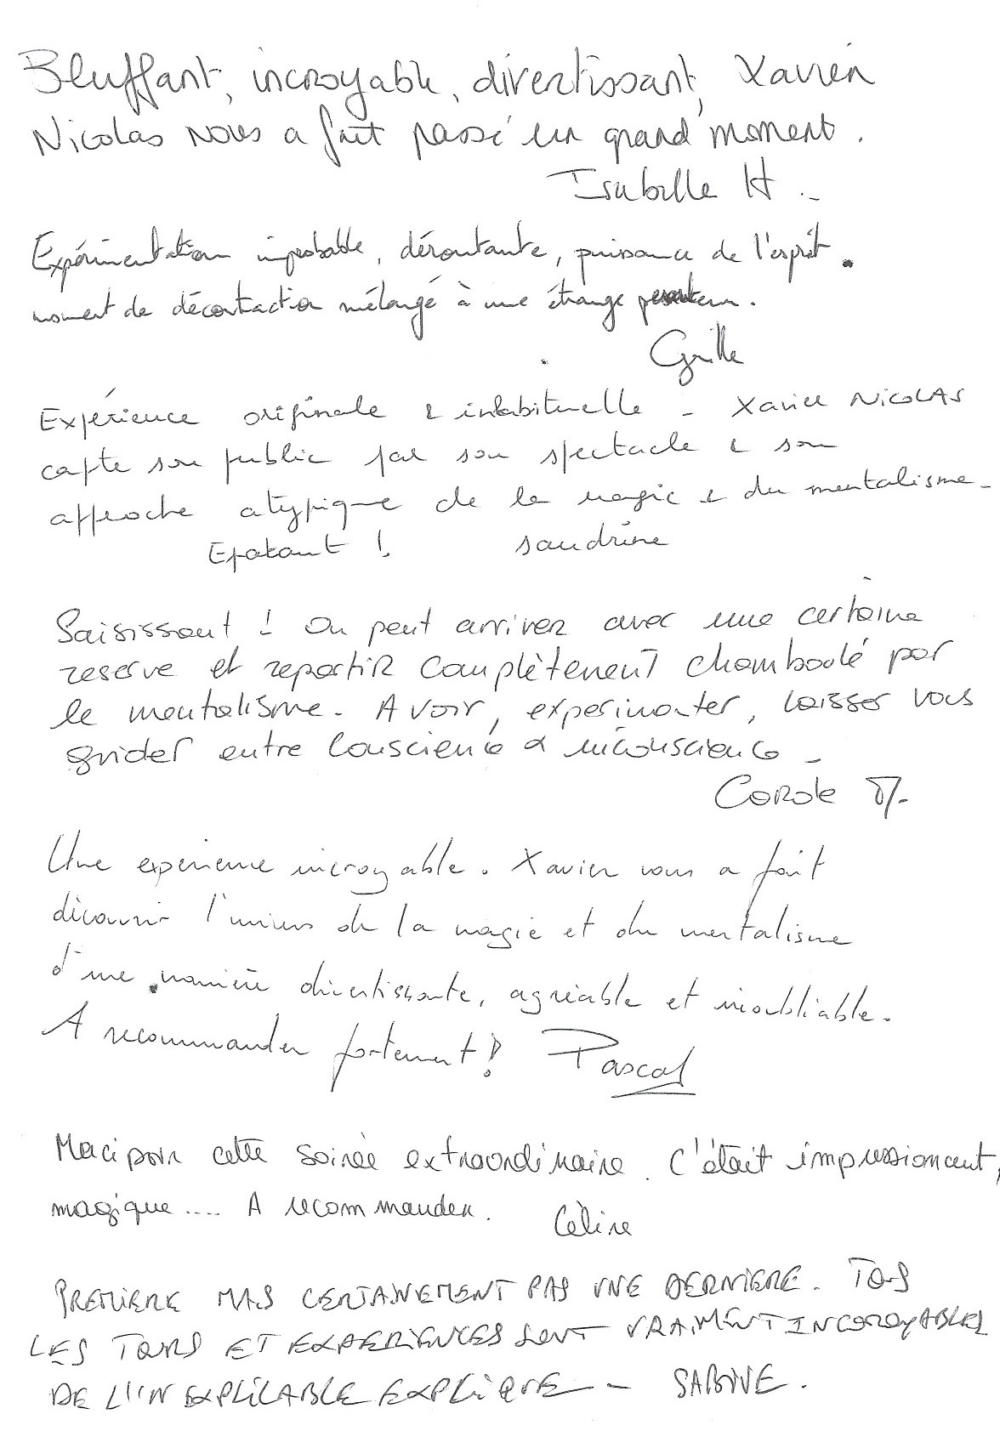 Bluffant, incroyable, divertissant, Xavier
Nicolas nous a fait passé un grand moment.
Isabelle H.
Expérimentation improbable, déroutante, puissance de l'esprit.
moment de décontraction mélangé à une étrange
Expérience originale & inhabituelle - Xavier NICOLAS
capte son public par son spectacle & son
approche atypique de la magie & du mentalisme -
Epatant ! Sandrine
Saisissant ! On peut arriver avec une certaine
reserve et repartir complètement chamboulé par
le mentalisme. A voir, experimenter, laisser vous
guider entre conscience & inconscience -
Carole
Une experience incroyable. Xavier vous a fait
découvrir l'univers de la magie et du mentalisme
d'une manière divertissante, agréable et inoubliable.
A recommander fortement ! Pascal
Merci pour cette soirée extraordinaire. C'était impressionant,
magique .... A recommander. Céline
PREMIERE MAIS CERTAINEMENT PAS UNE DERNIERE. TOUS
LES TOURS ET EXPERIENCES SONT VRAIMENT INCOROYABLES
DE L'INEXPLICABLE EXPLIQUE - SABINE.